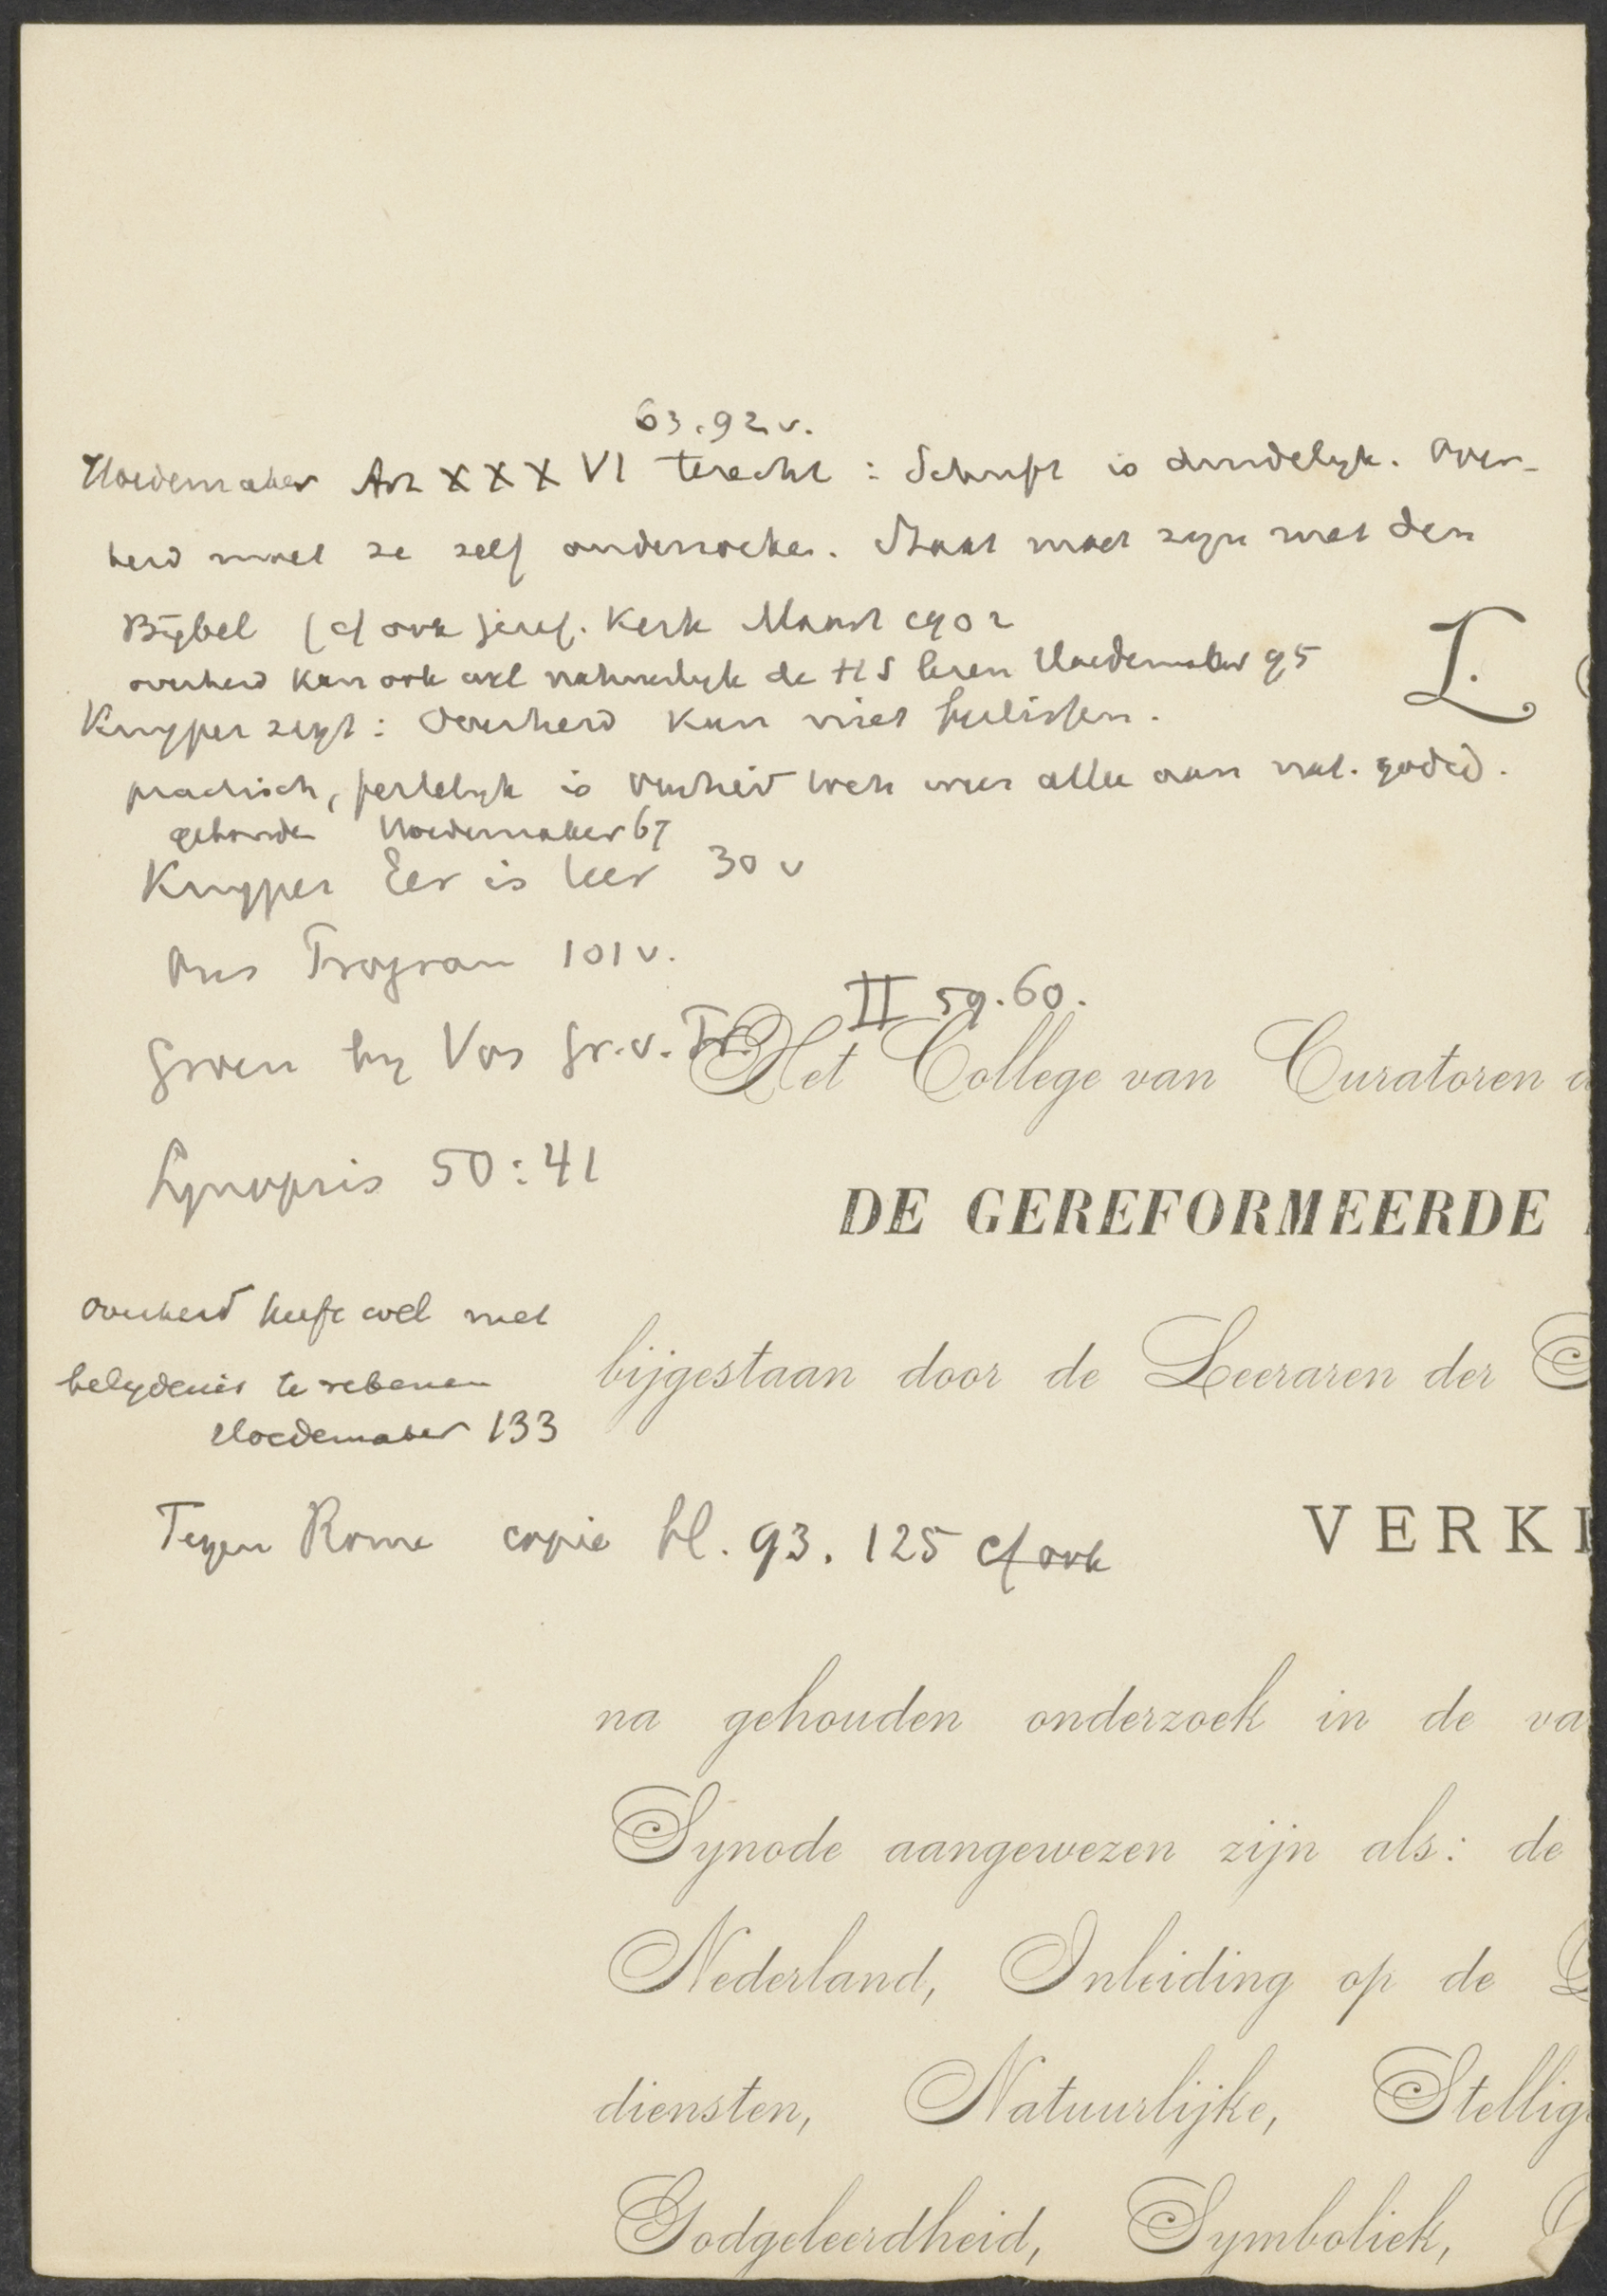 63.92 v.
Hoedemaker Art XXXVI terecht : Schrift is duidelyk. Over-
heid moet ze zelf onderzoeken. Staat moet zyn met den
Bijbel (cf ook geref. Kerk Maart 1902
overheid kan ook wel natuurlyk de HS lezen Hoedemaker 95
L.
Kuyper zegt : Overheid kan niet beslissen.
practisch, feitelyk is overheid toch weer alleen aan nat. godsd.
gebonden Hoedemaker 67
Kuyper Eer is teer 30 v
Ons Program 101 v.
II 59.60.
Groen by Vos Gr. v. Pr.
Het College van Curatoren
Synopsis 50:41
DE GEREFORMEERDE
overheid heeft wel met
belydenis te rekenen
Hoedemaker 133
bijgestaan door de Leeraren der
Tegen Rome copie bl. 93. 125 cf ook
VERKI
na gehouden onderzoek in de va
Synode aangewezen zijn als: de
Nederland, Inleiding op de
diensten, Natuurlijke, Stellig
Godgeleerdheid, Symboliek,